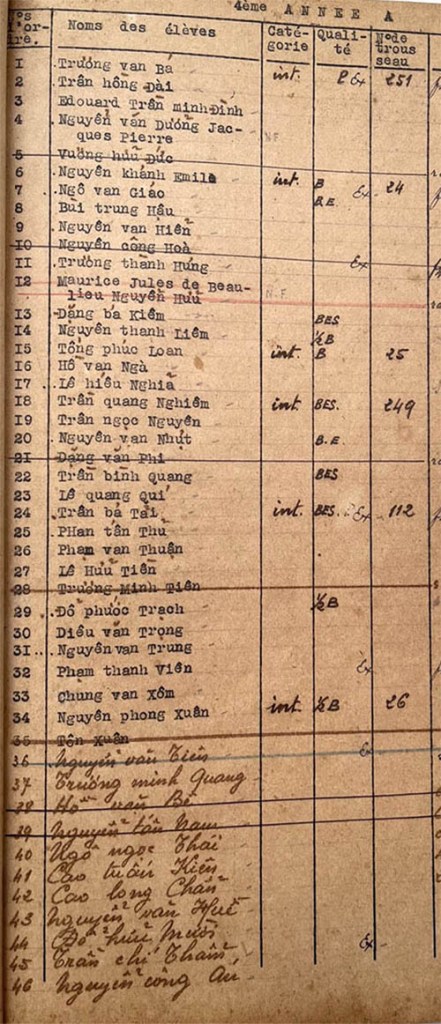 4ème ANNEE A
Nos d'or- dre. Noms des élèves Caté- gorie Quali- té Node trous seau
1 Trương van Bá
2 Trân hông Đài int. Ex 251
3 Edouard Trần minh Đình
4 Nguyễn văn Dưỡng Jac-
ques Pierre N F
5 Vương hữu Đức
6 Nguyễn khánh Emile
7 Ngô van Giác int. B Ex 24
8 Bùi trung Hậu B.E
9 Nguyễn van Hiền
10 Nguyễn công Hoà
11 Trương thành Hưng Ex
12 Maurice Jules de Beau-
lieu Nguyễn Hữu N.F
13 Dặng bá Kiểm BES
14 Nguyễn thanh Liêm ½B
15 Tống phúc Loan int. B 25
16 Hồ van Ngà
17 Lê hiếu Nghĩa
18 Trần quang Nghiêm int. BES. 249
19 Trần ngọc Nguyên
20 Nguyễn van Nhựt B.E.
21 Dặng văn Phi
22 Trần bình Quang BES
23 Lê quang Quí
24 Trần bá Tài int. BES. Ex 112
25 PHan tấn Thu
26 Phạm van Thuận
27 Lê Hưu Tiền
28 Trương Minh Tiên
29 Đỗ phước Trạch ½B
30 Diêu văn Trọng
31 Nguyễn van Trung
32 Phạm thanh Viên Ex
33 Chung van Xôm
34 Nguyễn phong Xuân int. ½B 26
35 Tôn Xuân
36 Nguyễn văn Tiên Ex
37 Trương minh Quang
38 Hồ văn Bê
39 Nguyễn tấn Nam
40 Ngô ngọc Thái
41 Cao tuấn Kiên
42 Cao long Chẩn
43 Nguyễn văn Huê
44 Đỗ hữu Mười Ex
45 Trần chí Thẩm
46 Nguyễn công Ân